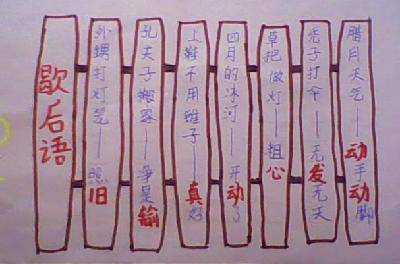 歇后语
外甥打灯笼——照旧
孔夫子搬家——净是输
上鞋不用锥子——真好
四月的冰河——开动了
草把做灯——粗心
秃子打伞——无发无天
腊月天气——动手动脚